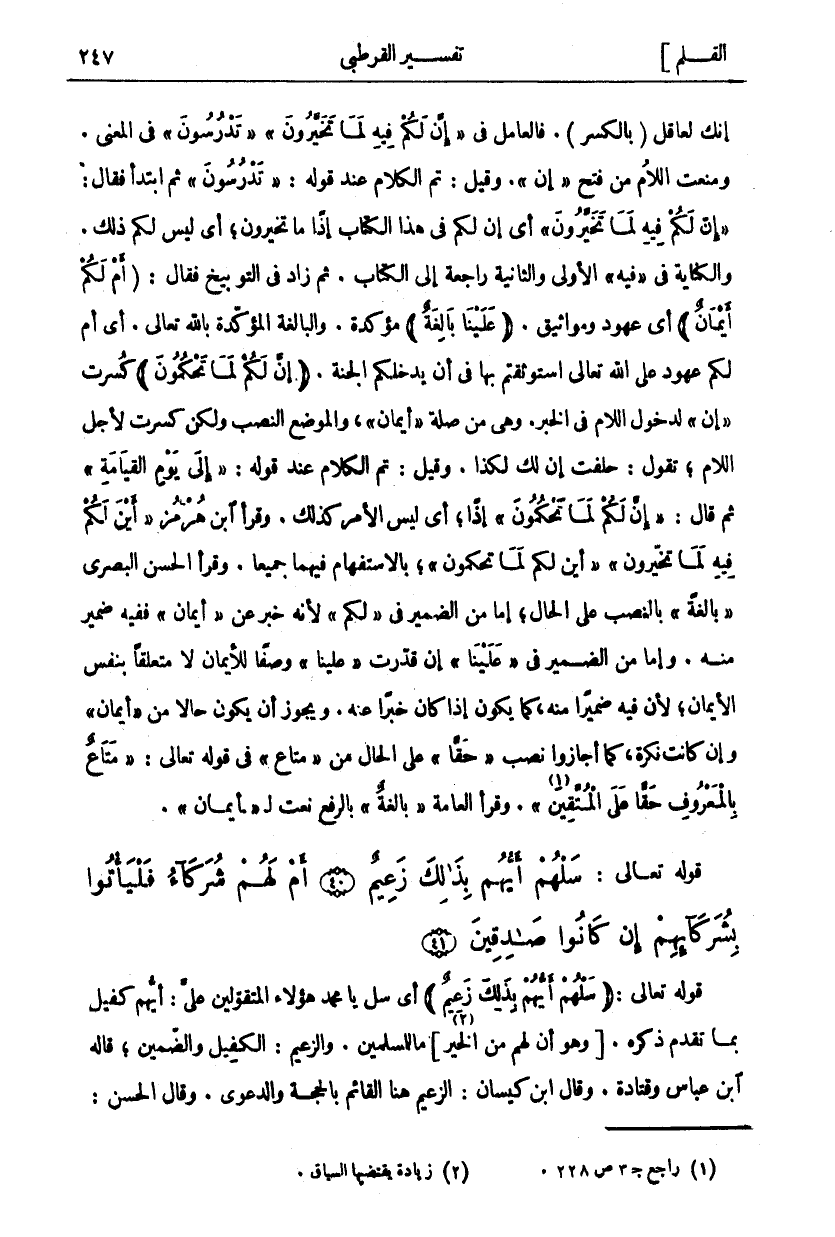 القلم]
تفسير القرطبي
٢٤٧
إنك لعاقل (بالكسر). فالعامل فى «إِنَّ لَكُمْ فِيهِ لَمَا تَخَيَّرُونَ» «تَدْرُسُونَ» فى المعنى.
ومنعت اللاُم من فتح «إن». وقيل: تم الكلام عند قوله: «تَدْرُسُونَ» ثم ابتدأ فقال:
«إِنّ لَكُمْ فِيهِ لَمَا تَخَيَّرُونَ» أى إن لكم فى هذا الكتاب إذًا ما تخيرون؛ أى ليس لكم ذلك.
والكناية فى «فيه» الأولى والثانية راجعة إلى الكتاب. ثم زاد فى التوبيخ فقال: (أَمْ لَكُمْ
أَيْمَانٌ) أى عهود ومواثيق. (عَلَيْنَا بَالِغَةٌ) مؤكدة. والبالغة المؤكّدة بالله تعالى. أى أم
لكم عهود على الله تعالى استوثقتم بها فى أن يدخلكم الجنة. (إِنَّ لَكُمْ لَمَا تَحْكُمُونَ) كُسرت
«إن» لدخول اللام فى الخبر. وهى من صلة «أيمان»، والموضع النصب ولكن كسرت لأجل
اللام؛ تقول: حلفت إن لك لكذا. وقيل: تم الكلام عند قوله: «إِلَى يَوْمِ القِيَامَةِ»
ثم قال: «إِنَّ لَكُمْ لَمَا تَحْكُمُونَ» إذًا؛ أى ليس الأمر كذلك. وقرأ آبن هُرْمُز «أَيْنَ لَكُمْ
فِيهِ لَمَا تخيّرون» «أين لكم لَمَا تحكمون»؛ بالاستفهام فيهما جميعا. وقرأ الحسن البصرى
«بالغةً» بالنصب على الحال؛ إما من الضمير فى «لكم» لأنه خبر عن «أيمان» ففيه ضمير
منه. وإما من الضمير فى «عَلَيْنَا» إن قدّرت «علينا» وصفًا للأيمان لا متعلقاً بنفس
الأيمان؛ لأن فيه ضميرًا منه، كما يكون إذا كان خبرًا عنه. ويجوز أن يكون حالا من «أيمان»
وإن كانت نكرة، كما أجازوا نصب «حَقًّا» على الحال من «متاع» فى قوله تعالى: «مَتَاعٌ
بِالْمَعْرُوفِ حَقًّا عَلَى الْمُتَّقِينَ(١)». وقرأ العامة «بالغةٌ» بالرفع نعت لـ«أيمان».
قوله تعالى: سَلْهُمْ أَيُّهُم بِذَٰلِكَ زَعِيمٌ ٤٠ أَمْ لَهُمْ شُرَكَآءُ فَلْيَأْتُوا
بِشُرَكَآئِهِمْ إِن كَانُوا صَٰدِقِينَ ٤١
قوله تعالى: (سَلْهُمْ أَيُّهُمْ بِذَلِكَ زَعِيمٌ) أى سل يا محمد هؤلاء المتقوّلين علىّ: أيّهم كفيل
بما تقدم ذكره. [وهو أن لهم من الخير](٢) ما للمسلمين. والزعيم: الكفيل والضّمين؛ قاله
آبن عباس وقتادة. وقال ابن كيسان: الزعيم هنا القائم بالحجة والدعوى. وقال الحسن:
(١) راجع جـ ٣ ص ٢٢٨.
(٢) زيادة يقتضيها السياق.